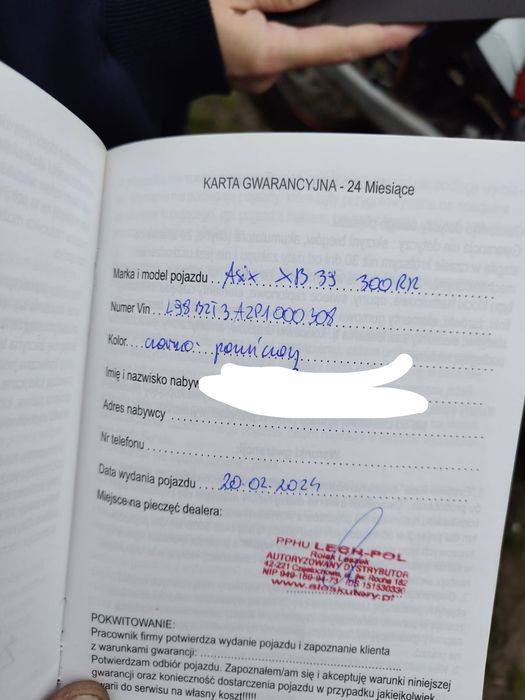 KARTA GWARANCYJNA - 24 Miesiące
Marka i model pojazdu Asix XB 39 300RR
Numer Vin L98BZT3A2P1000308
Kolor czarno-
Imię i nazwisko nabyw
Adres nabywcy
Nr telefonu
Data wydania pojazdu 20.02.2024
Miejsce na pieczęć dealera:
PPHU LECH-POL
Rolak Leszek
AUTORYZOWANY DYSTRYBUTOR
42-221 Częstochowa, św. Rocha 182
NIP 949-169-94-73
www.aleskutery.pl
POKWITOWANIE:
Pracownik firmy potwierdza wydanie pojazdu i zapoznanie klienta
z warunkami gwarancji:
Potwierdzam odbiór pojazdu. Zapoznałem/am się i akceptuję warunki niniejszej
gwarancji oraz konieczność dostarczenia pojazdu w przypadku jakiejkolwiek
awarii do serwisu na własny koszt!!!!!